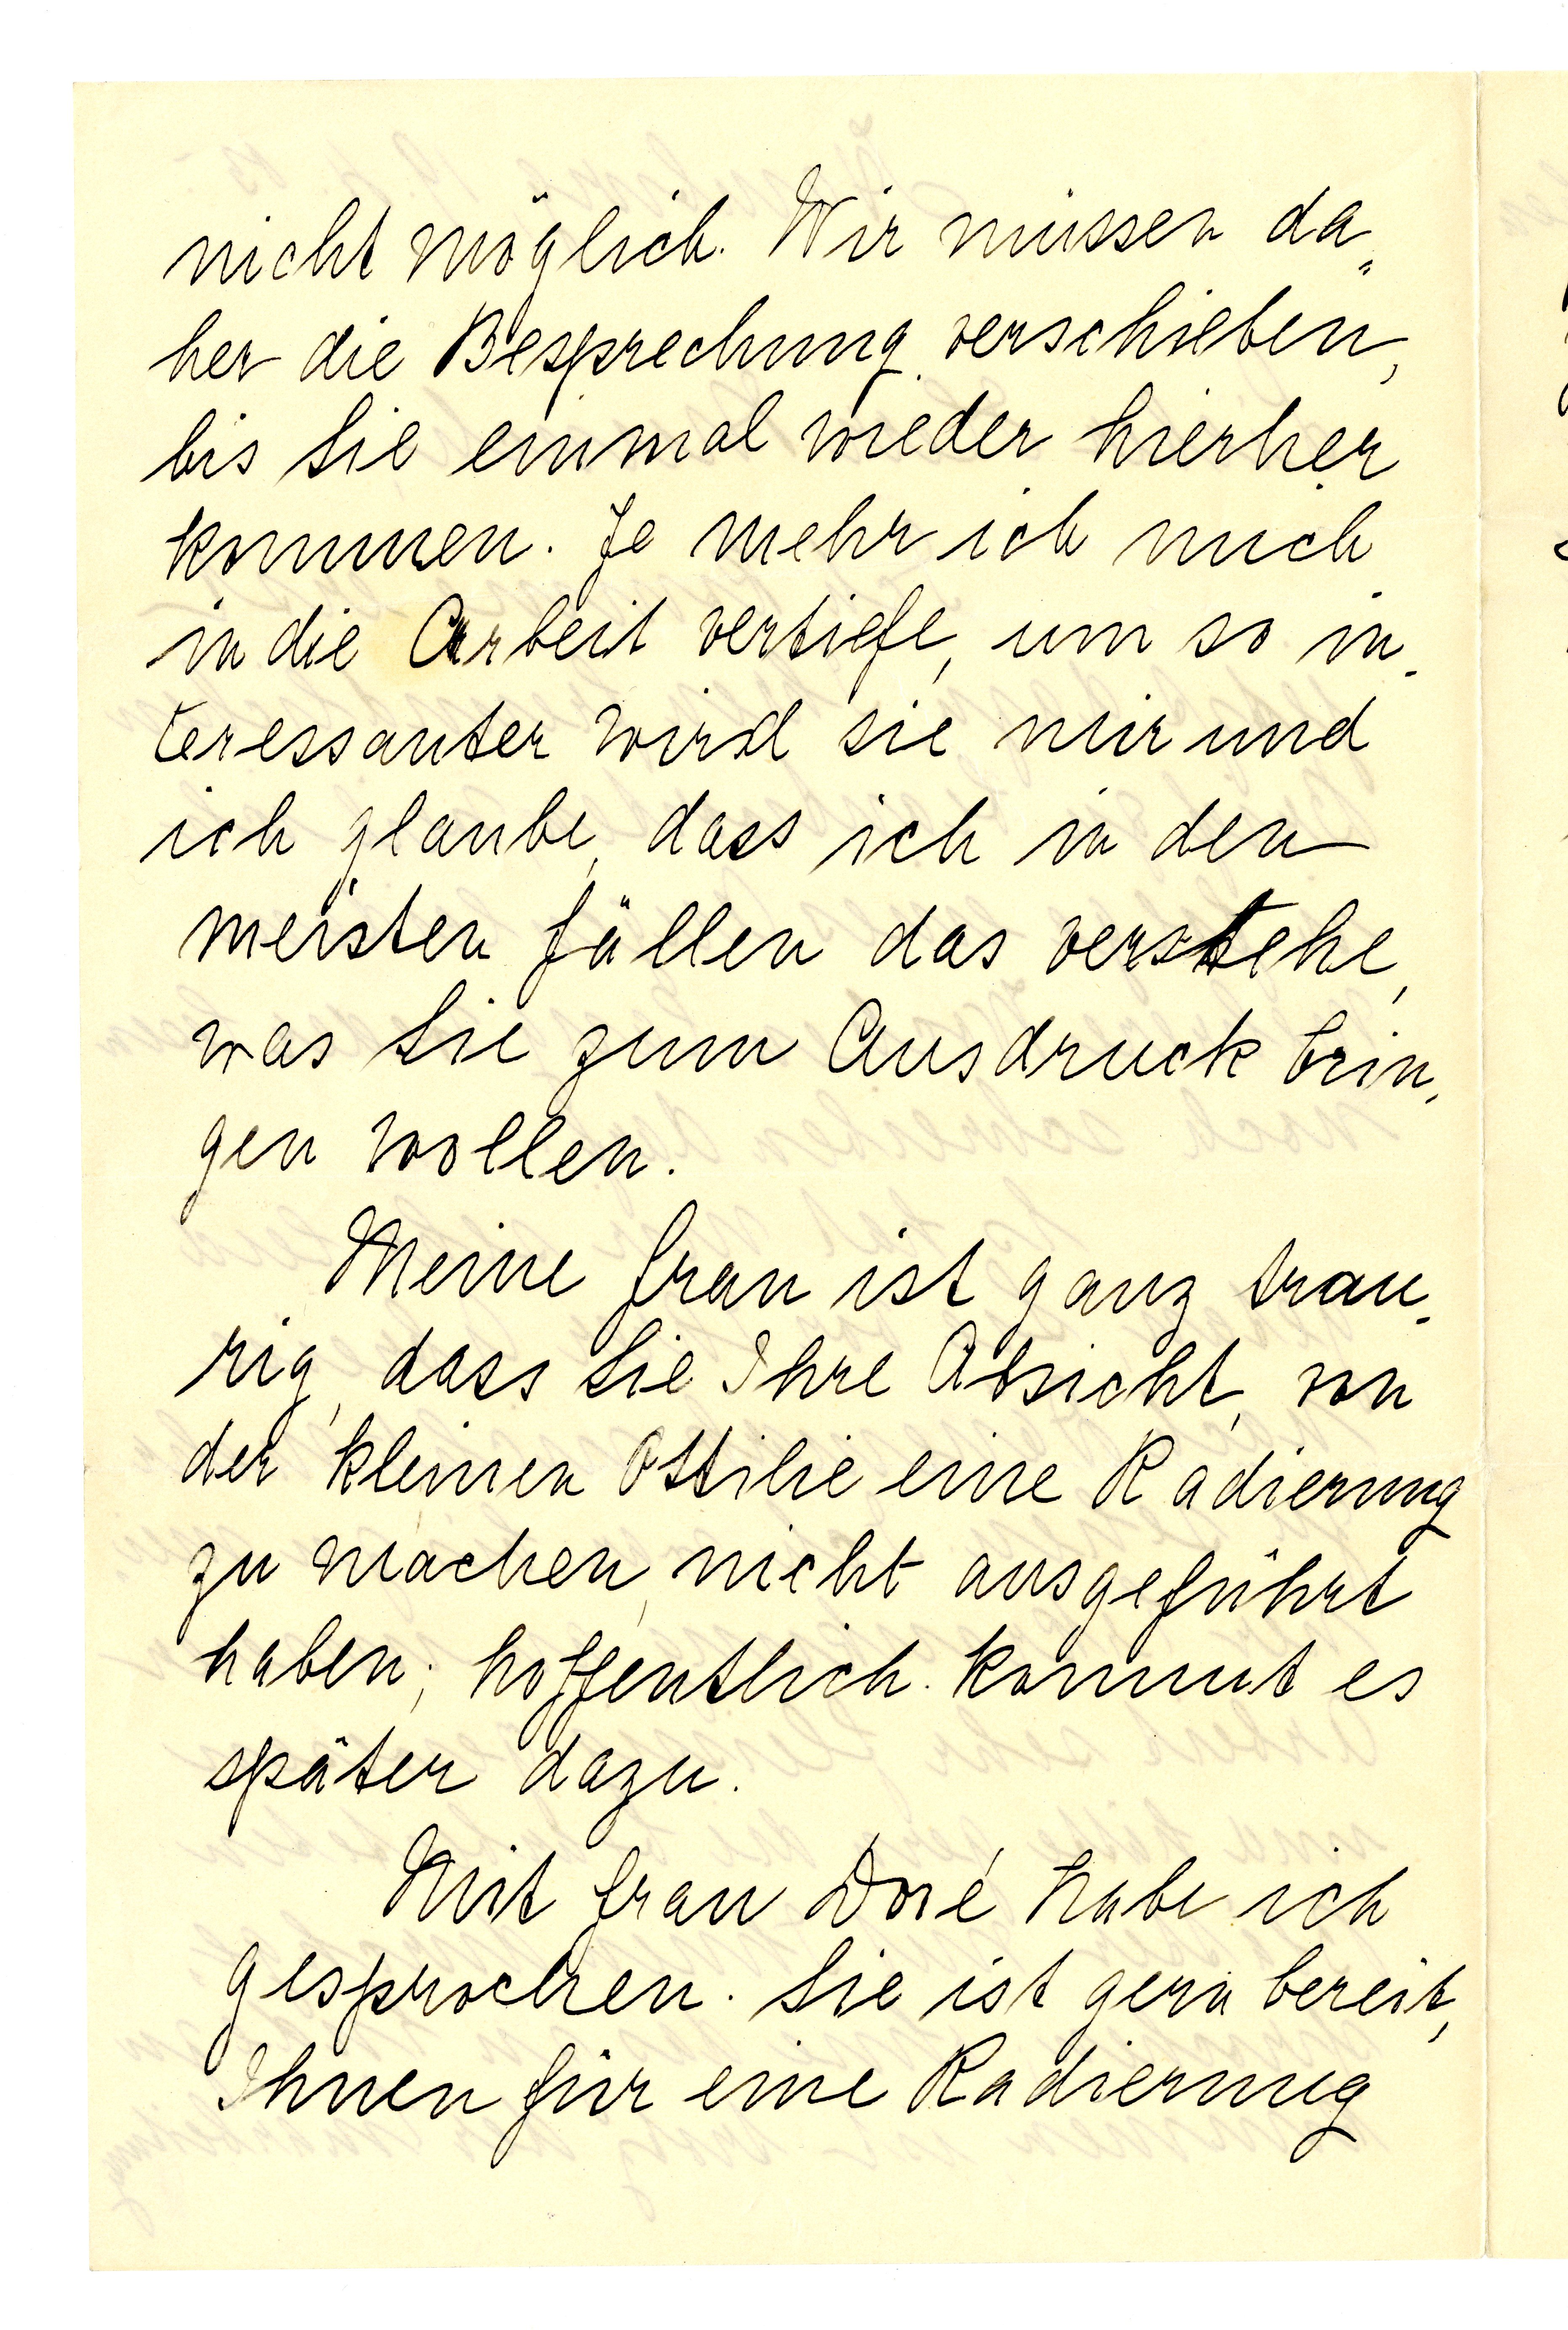 nicht möglich. Wir müssen da-
her die Besprechung verschieben,
bis Sie einmal wieder hierher
kommen. Je mehr ich mich
in die Arbeit vertiefe, um so in-
teressanter wird sie mir und
ich glaube, dass ich in den
meisten Fällen das verstehe,
was Sie zum Ausdruck brin-
gen wollen.
Meine Frau ist ganz trau-
rig, dass Sie Ihre Absicht, von
der kleinen Ottilie eine Radierung
zu machen, nicht ausgeführt
haben; hoffentlich kommt es
später dazu.
Mit Frau Doré habe ich
gesprochen. Sie ist gern bereit,
Ihnen für eine Radierung